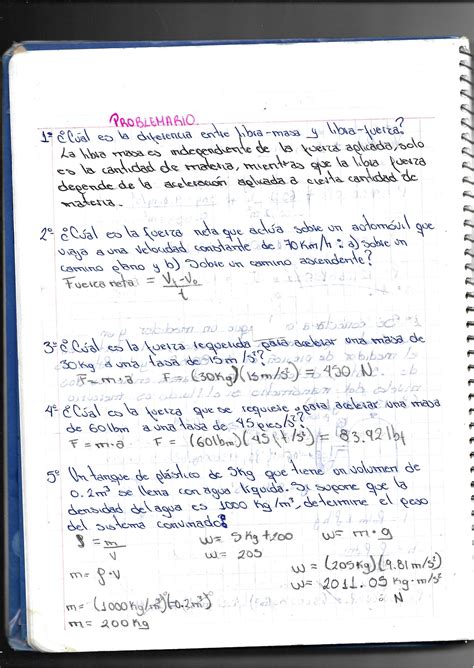 PROBLEMARIO.
1º ¿Cúal es la diferencia entre libra-masa y libra-fuerza?
La libra masa es independiente de la fuerza aplicada, solo
es la cantidad de materia, mientras que la libra fuerza
depende de la aceleración aplicada a cierta cantidad de
materia.
2º ¿Cúal es la fuerza neta que actúa sobre un automóvil que
viaja a una velocidad constante de 70 km/h: a) sobre un
camino plano y b) Sobre un camino ascendente?
Fuerza neta = Vf-Vo
t
3º ¿Cúal es la fuerza requerida para acelerar una masa de
30 kg a una tasa de 15 m/s²?
F = m·a F = (30kg)(15m/s²) = 450 N
4º ¿Cúal es la fuerza que se requiere para acelerar una masa
de 60 lbm a una tasa de 45 pies/s²?
F = m·a F = (60lbm)(45 ft/s²) = 83.92 lbf
5º Un tanque de plástico de 5kg que tiene un volumen de
0.2m³ se llena con agua líquida. Si supone que la
densidad del agua es 1000 kg/m³, determine el peso
del sistema convinado:
ρ = m w = 5kg+200 w = m·g
v w = 205
m = ρ·v w = (205kg)(9.81 m/s²)
w = 2011.05 kg·m/s²
m = (1000kg/m³)(0.2m³) ∴ N
m = 200kg